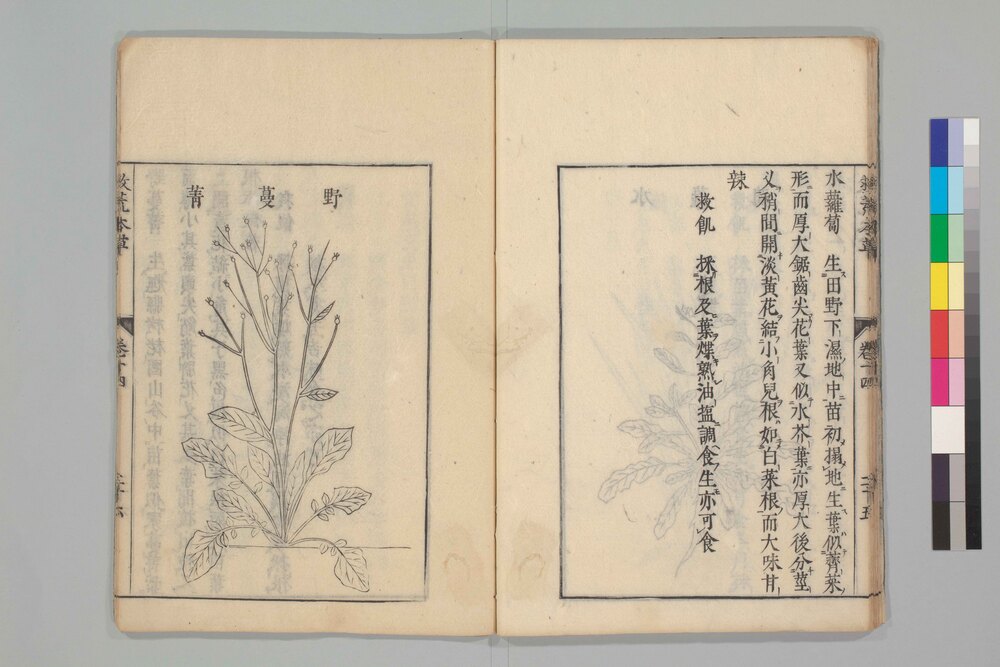 水蘿蔔 生田野下濕地中苗初搨地生葉似薺菜
形而厚大鋸齒尖花葉又似水芥葉亦厚大後分莖
叉稍間開淡黃花結小角兒根如白菜根而大味甘
辣
救飢 採根及葉煠熟油鹽調食生亦可食
野蔓菁
救荒本草
卷十四